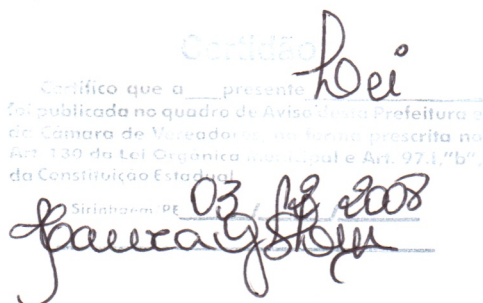 Certidão
Certifico que a presente Lei
foi publicada no quadro de Aviso desta Prefeitura e
da Câmara de Vereadores, na forma prescrita no
Art. 130 da Lei Orgânica municipal e Art. 97.I,"b",
da Constituição Estadual
Sirinhaém PE 03 / / 2008